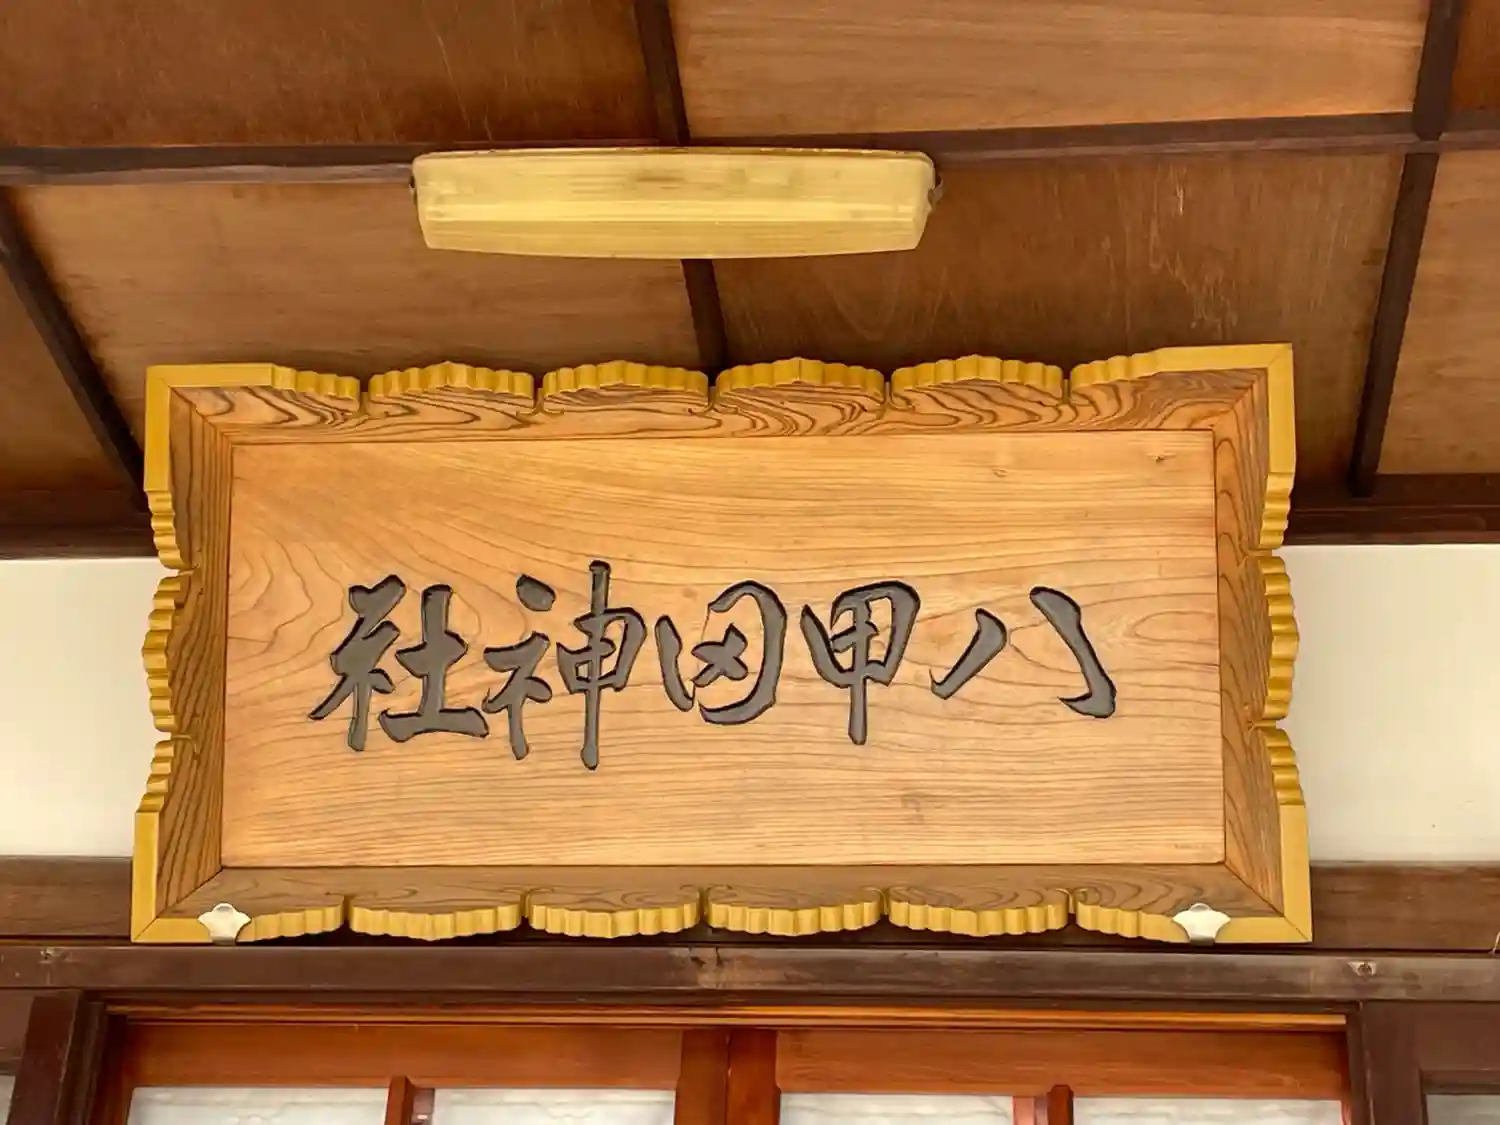 八甲田神社